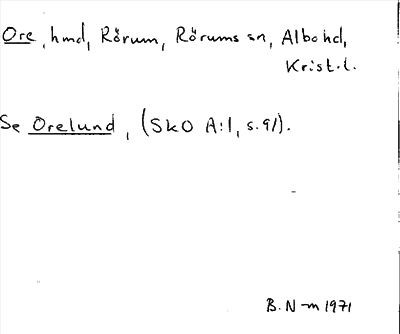 Ore, hmd, Rörum, Rörums sn, Albo hd,
Krist. l.
Se Orelund, (SkO A:1, s. 91).
B. N-m 1971